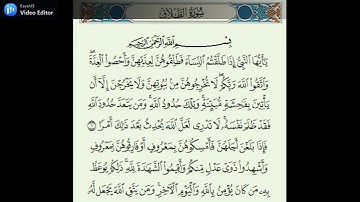 EaseUS
Video Editor
سُورَةُ الطَّلَاقِ
بِسْمِ اللَّهِ الرَّحْمَٰنِ الرَّحِيمِ
يَا أَيُّهَا النَّبِيُّ إِذَا طَلَّقْتُمُ النِّسَاءَ فَطَلِّقُوهُنَّ لِعِدَّتِهِنَّ وَأَحْصُوا الْعِدَّةَ ۖ
وَاتَّقُوا اللَّهَ رَبَّكُمْ ۖ لَا تُخْرِجُوهُنَّ مِنْ بُيُوتِهِنَّ وَلَا يَخْرُجْنَ إِلَّا أَنْ
يَأْتِينَ بِفَاحِشَةٍ مُبَيِّنَةٍ ۚ وَتِلْكَ حُدُودُ اللَّهِ ۚ وَمَنْ يَتَعَدَّ حُدُودَ اللَّهِ
فَقَدْ ظَلَمَ نَفْسَهُ ۚ لَا تَدْرِي لَعَلَّ اللَّهَ يُحْدِثُ بَعْدَ ذَٰلِكَ أَمْرًا ١
فَإِذَا بَلَغْنَ أَجَلَهُنَّ فَأَمْسِكُوهُنَّ بِمَعْرُوفٍ أَوْ فَارِقُوهُنَّ بِمَعْرُوفٍ
وَأَشْهِدُوا ذَوَيْ عَدْلٍ مِنْكُمْ وَأَقِيمُوا الشَّهَادَةَ لِلَّهِ ۚ ذَٰلِكُمْ يُوعَظُ
بِهِ مَنْ كَانَ يُؤْمِنُ بِاللَّهِ وَالْيَوْمِ الْآخِرِ ۚ وَمَنْ يَتَّقِ اللَّهَ يَجْعَلْ لَهُ